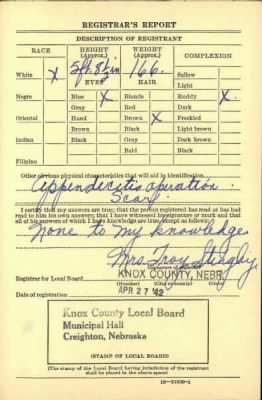 REGISTRAR'S REPORT
DESCRIPTION OF REGISTRANT
RACE HEIGHT (Approx.) WEIGHT (Approx.) COMPLEXION
White X 5ft. 8½in 166 Sallow
EYES HAIR Light
Negro Blue X Blonde Ruddy X
Gray Red Dark
Oriental Hazel Brown X Freckled
Brown Black Light brown
Indian Black Gray Dark brown
Bald Black
Filipino
Other obvious physical characteristics that will aid in identification
Appendicitis operation
Scar
I certify that my answers are true; that the person registered has read or has had
read to him his own answers; that I have witnessed his signature or mark and that
all of his answers of which I have knowledge are true, except as follows:
None to my knowledge
Mrs. Troy
Registrar for Local Board KNOX COUNTY, NEBR.
(Number) (City or county) (State)
Date of registration APR 27 '42
Knox County Local Board
Municipal Hall
Creighton, Nebraska
(STAMP OF LOCAL BOARD)
(The stamp of the Local Board having jurisdiction of the registrant
shall be placed in the above space)